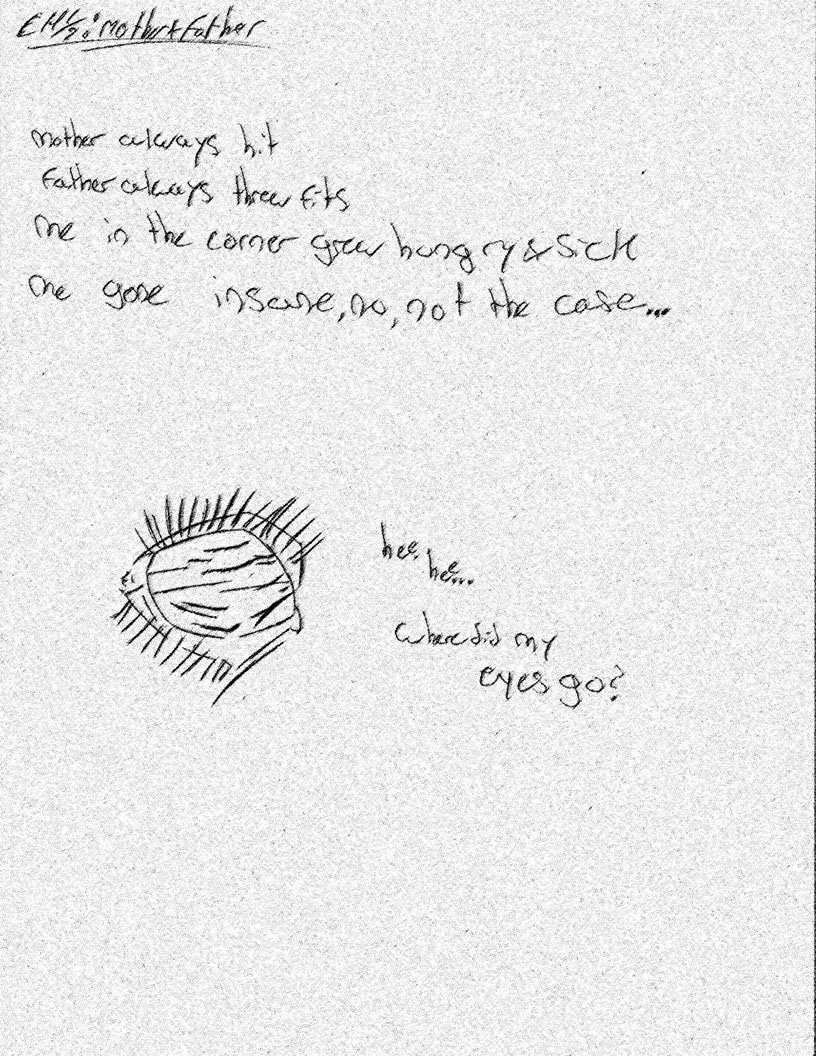 : Mother & Father
mother always hit
Father always threw fits
me in the corner grew hungry & sick
me gone insane, no, not the case...
hee
he...
where did my
eyes go?